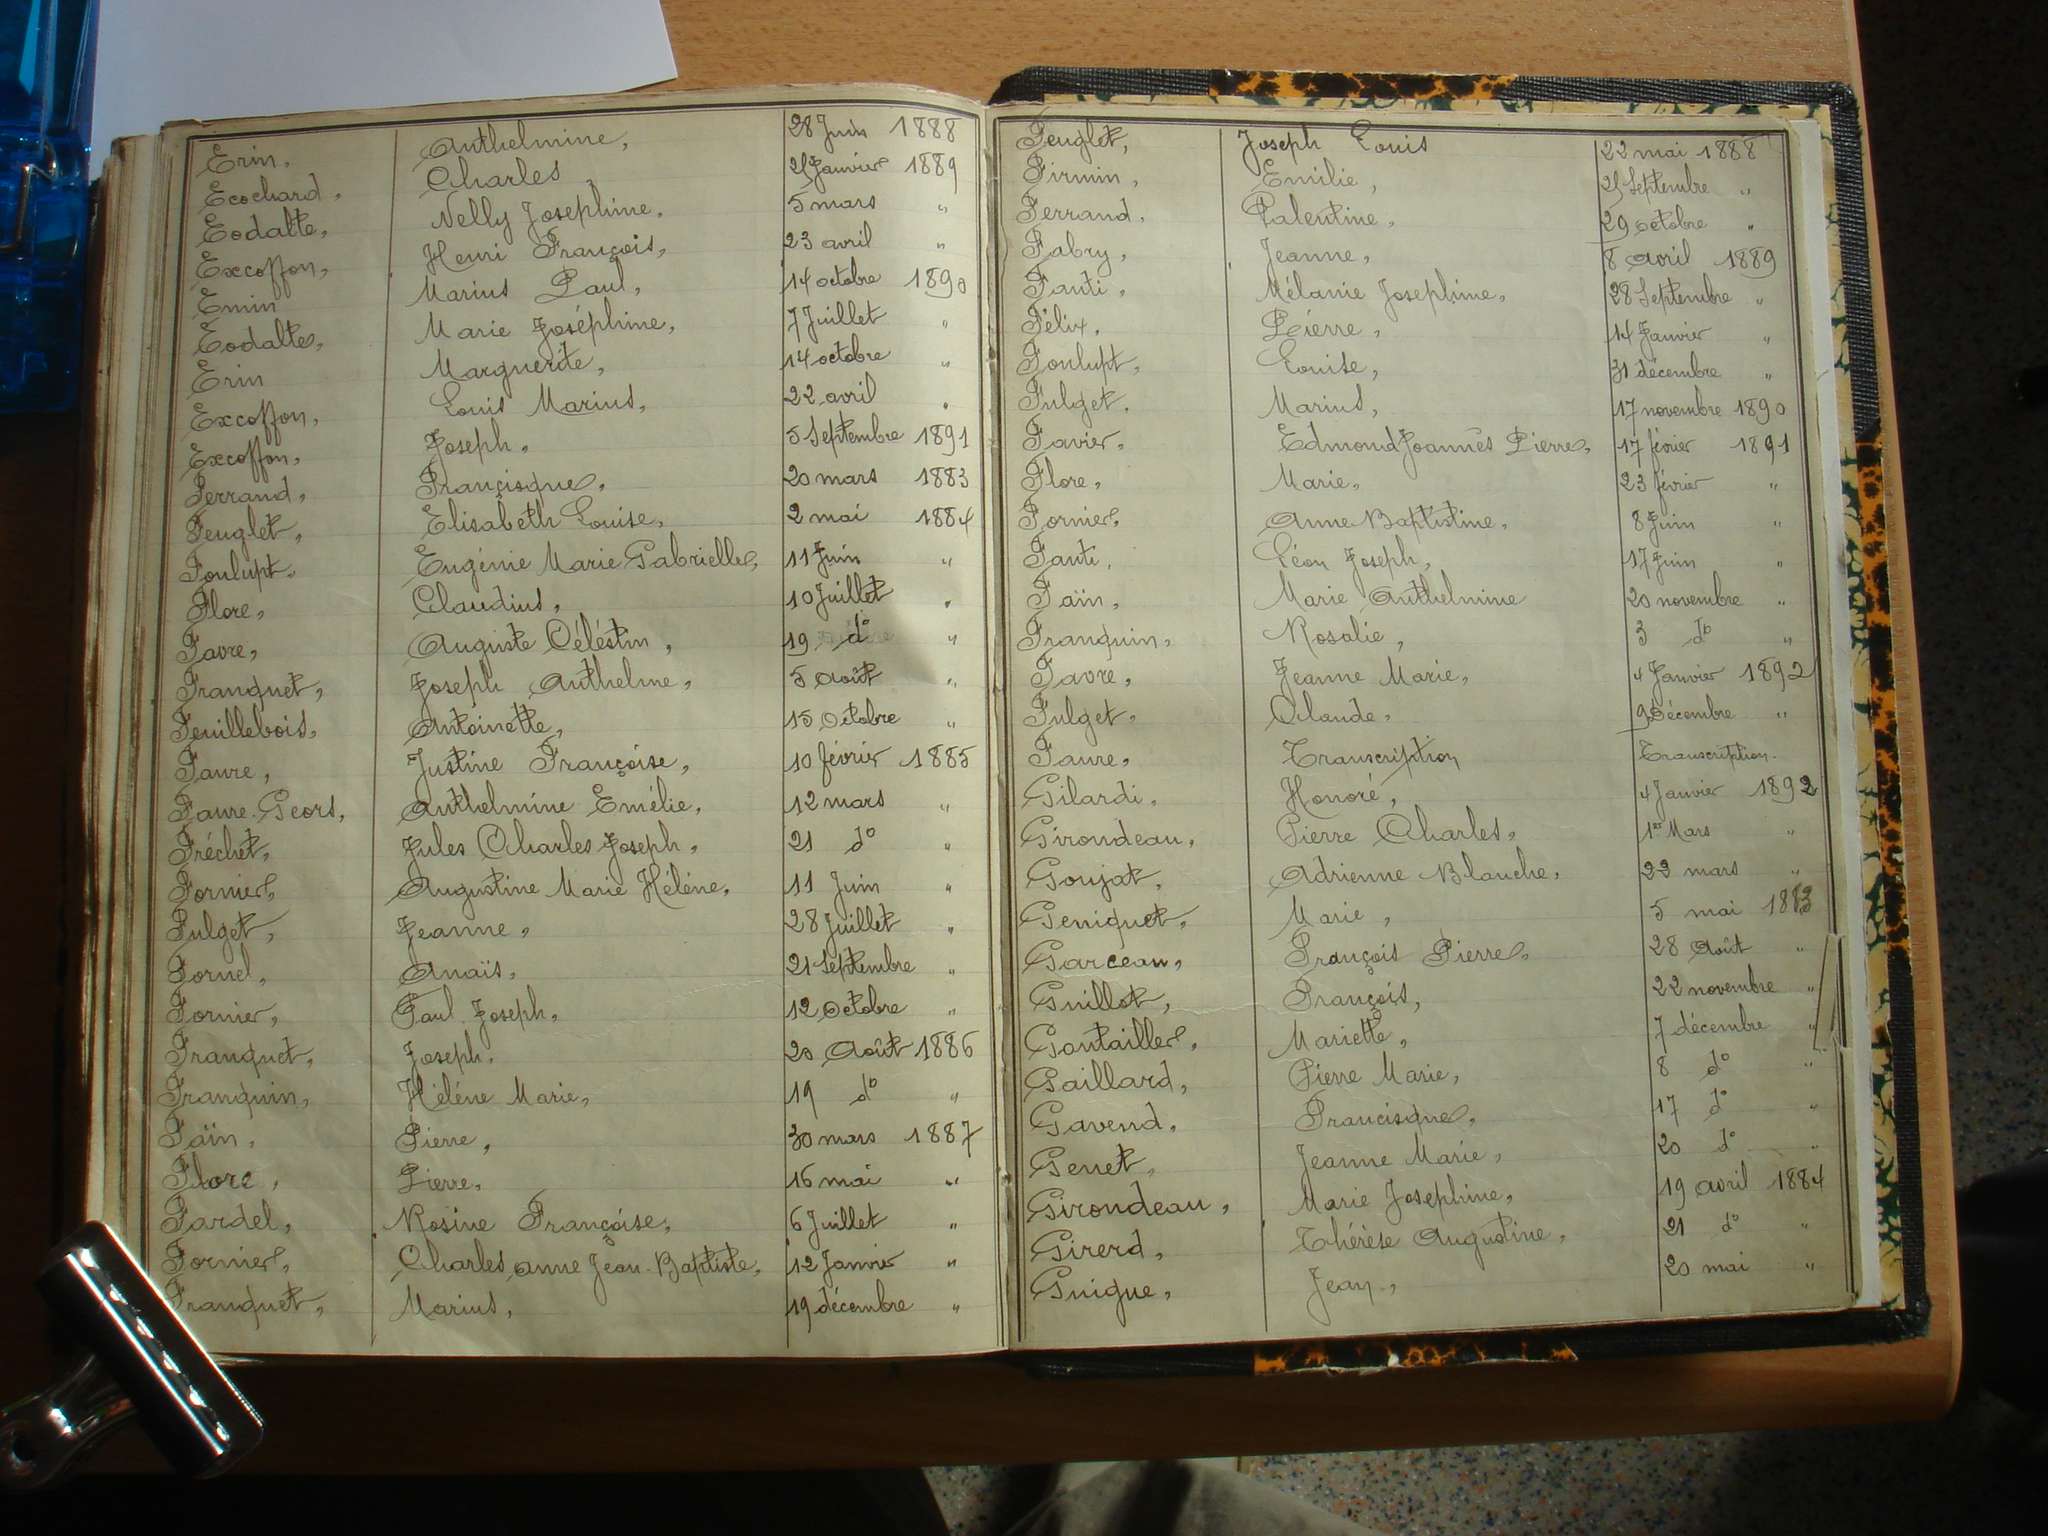 Erin, Anthelmine, 28 Juin 1888
Ecochard, Charles, 21 Janvier 1889
Eodalte, Nelly Josephine, 5 mars "
Excoffon, Henri François, 23 avril "
Emin Marius Paul, 14 octobre 1890
Eodalte, Marie Joséphine, 7 Juillet "
Erin Marguerite, 14 octobre "
Excoffon, Louis Marius, 22 avril "
Excoffon, Joseph, 5 Septembre 1891
Ferrand, Françisque, 20 mars 1883
Feuglet, Elisabeth Louise, 2 mai 1884
Foulupt, Eugénie Marie Gabrielle, 11 Juin "
Flore, Claudius, 10 Juillet "
Favre, Auguste Céléstin, 19 do "
Franquet, Joseph Anthelme, 5 Août "
Feuillebois, Antoinette, 15 Octobre "
Faure, Justine Françoise, 10 février 1885
Faure-Geors, Anthelmine Emélie, 12 mars "
Fréchet, Jules Charles Joseph, 21 do "
Fornier, Augustine Marie Hélène, 11 Juin "
Fulget, Jeanne, 28 Juillet "
Fornel, Anaïs, 21 Septembre "
Fornier, Paul Joseph, 12 Octobre "
Franquet, Joseph, 20 Août 1886
Franquin, Héléne Marie, 19 do "
Faïn, Pierre, 30 mars 1887
Flore, Pierre, 16 mai "
Fardel, Rosine Françoise, 6 Juillet "
Fornier, Charles anne Jean-Baptiste, 12 Janvier "
Franquet, Marius, 19 décembre "
Feuglet, Joseph Louis 22 mai 1888
Firmin, Emilie, 21 Septembre "
Ferrand, Valentine, 29 octobre "
Fabry, Jeanne, 8 avril 1889
Fanti, Mélanie Josephine, 28 Septembre "
Félix, Pierre, 14 Janvier "
Foulupt, Louise, 31 décembre "
Fulget, Marius, 17 novembre 1890
Favier, Edmond Joannès Pierre, 17 février 1891
Flore, Marie, 23 février "
Fornier, Anne Baptistine, 8 Juin "
Fanti, Léon Joseph, 17 Juin "
Faïn, Marie Anthelmine 20 novembre "
Franquin, Rosalie, 3 do "
Favre, Jeanne Marie, 4 Janvier 1892
Fulget, Claude, 9 Décembre "
Faure, Transcription Transcription
Gilardi, Honoré, 4 Janvier 1892
Girondeau, Pierre Charles, 1er Mars "
Goujat, Adrienne Blanche, 22 mars "
Geniquet, Marie, 5 mai 1883
Garceau, François Pierre, 28 Août "
Guillot, François, 22 novembre "
Gontailler, Mariette, 7 décembre "
Gaillard, Pierre Marie, 8 do "
Gavend, Francisque, 17 do "
Genet, Jeanne Marie, 20 do "
Girondeau, Marie Josephine, 19 avril 1884
Girerd, Thérèse Augustine, 21 do "
Guigue, Jean, 20 mai "